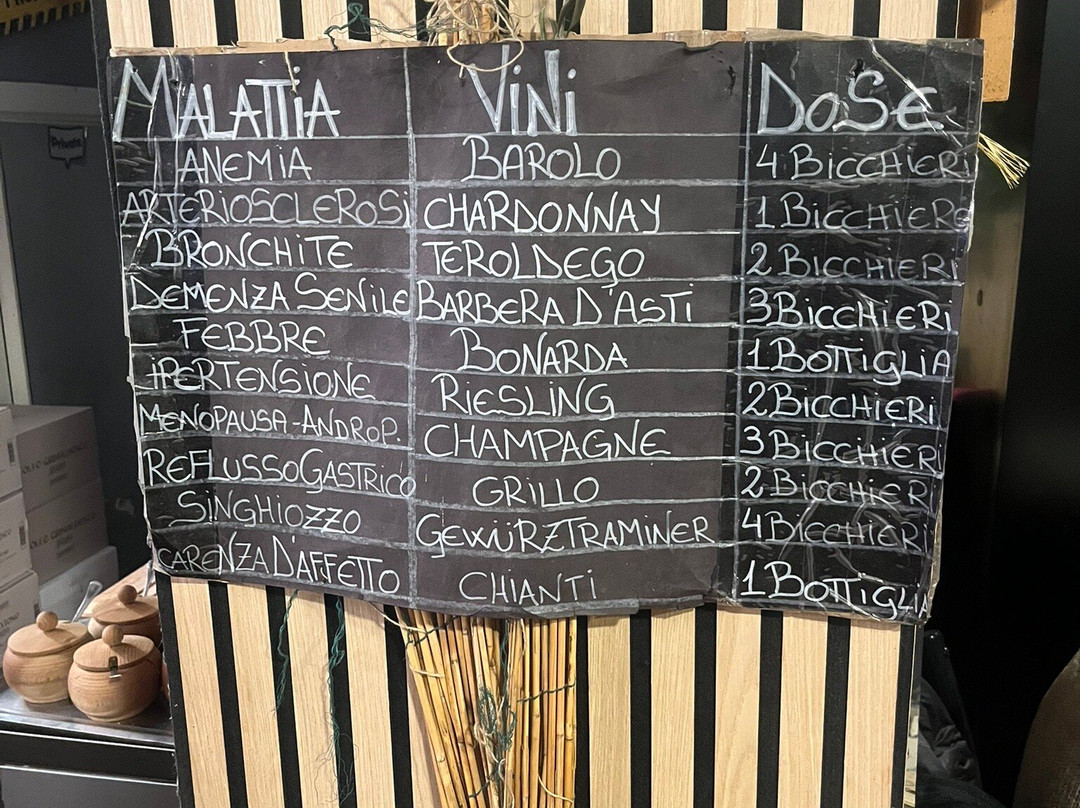 Private
MALATTIA VINI DOSE
ANEMIA BAROLO 4 BICCHIERI
ARTERIOSCLEROSI CHARDONNAY 1 BICCHIERE
BRONCHITE TEROLDEGO 2 BICCHIERI
DEMENZA SENILE BARBERA D'ASTI 3 BICCHIERI
FEBBRE BONARDA 1 BOTTIGLIA
IPERTENSIONE RIESLING 2 BICCHIERI
MENOPAUSA-ANDROP. CHAMPAGNE 3 BICCHIERI
REFLUSSO GASTRICO GRILLO 2 BICCHIERI
SINGHIOZZO GEWÜRZTRAMINER 4 BICCHIERI
CARENZA D'AFFETTO CHIANTI 1 BOTTIGLIA